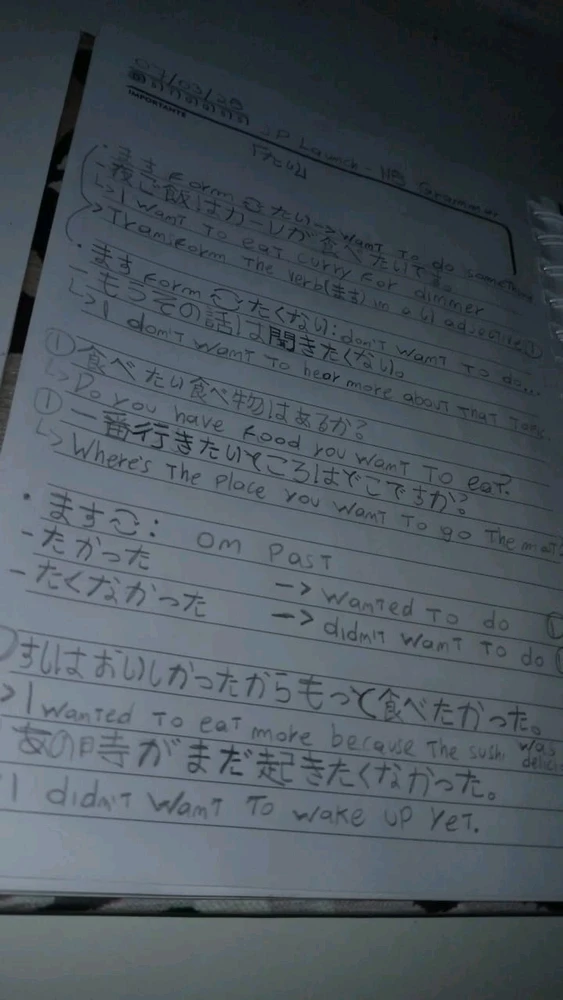 IMPORTANTE
JP Launch - Grammar
「たい」
・ます Form たい -> want to do something
- 晩ご飯はカーレが食べたいです。
↳ I want to eat curry for dinner
> Transform the verb(ます) in a い adjective ①
・ます Form たくない: don't want to do...
- もうその話は聞きたくない。
↳ I don't want to hear more about that topic.
① 食べたい食べ物はあるか?
↳ Do you have food you want to eat?
① 一番行きたいところはどこですか?
↳ Where's the place you want to go the most?
・ます: om past
- たかった -> wanted to do ①
- たくなかった -> didn't want to do
すしはおいしかったからもって食べたかった。
> I wanted to eat more because the sushi was delici
あの時がまだ起きたくなかった。
I didn't want to wake up yet.